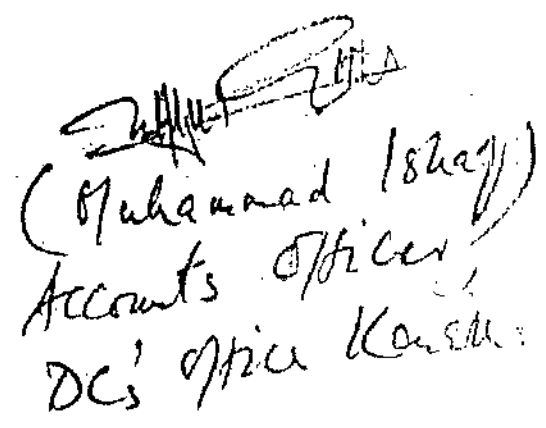 (Muhammad Ishaq)
Accounts Officer
DC's Office